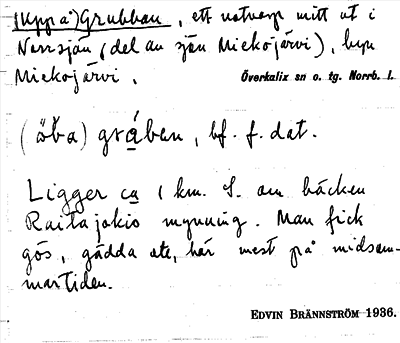 (Uppå) Grubban, ett notvarp mitt ut i
Norrsjön (del av sjön Miekojärvi), byn
Miekojärvi.
Överkalix sn o. tg. Norrb. l.
(åb̆a) grában, bf. f. dat.
Ligger ca 1 km. S. om bäcken
Raitajokis mynning. Man fick
gös, gädda etc, här mest på midsom-
martiden.
EDVIN BRÄNNSTRÖM 1936.